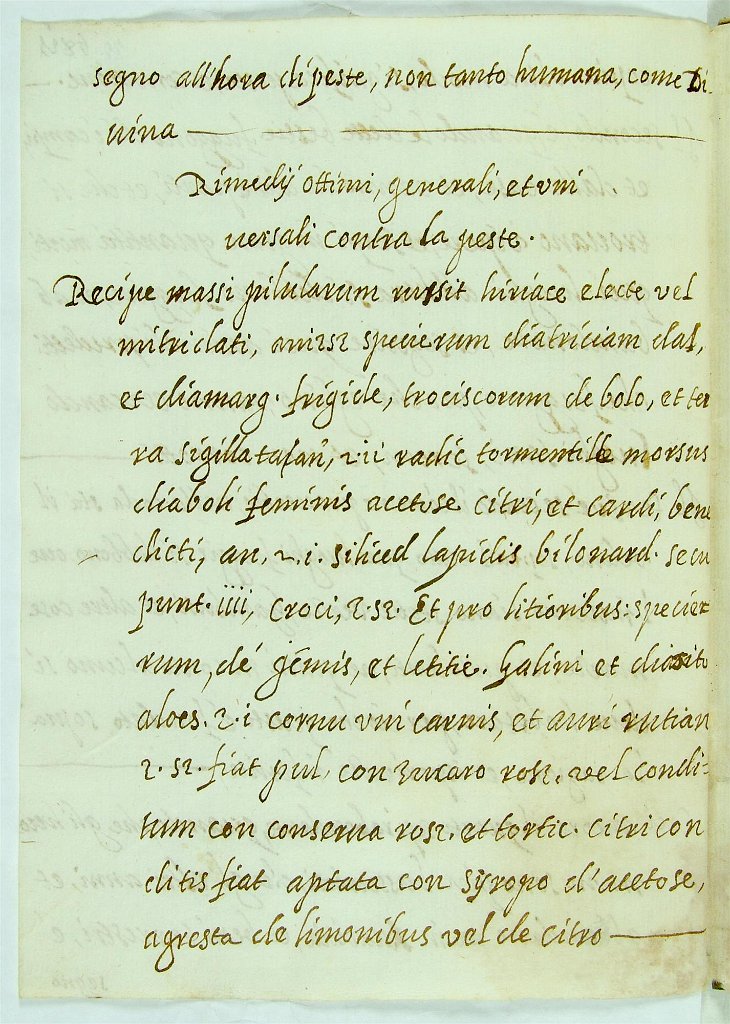 segno all'hora di peste, non tanto humana, come Di
uina
Rimedij ottimi, generali, et uni
uersali contra la peste.
Recipe massi pilularum russit hiriace electe vel
mitridati, specierum diatriciam dal,
et diamarg. frigide, trociscorum de bolo, et ter
ra sigillata an, radic tormentille morsus
diaboli feminis acetose citri, et cardi, bene
dicti, an, 2.i. siliced lapidis bilonard. secu
punt. iiii, Croci, 2.s2. Et pro litioribus: specier
rum, de gemis, et letitie. Galini et
aloes. 2.i cornu unicarnis, et auri rutian
2.s2. fiat pul, con zucaro ros2, vel condi-
tum con conserua ros2. et tortic. citri con
ditis fiat aptata con syropo d'acetose,
agresta de limonibus vel de citro